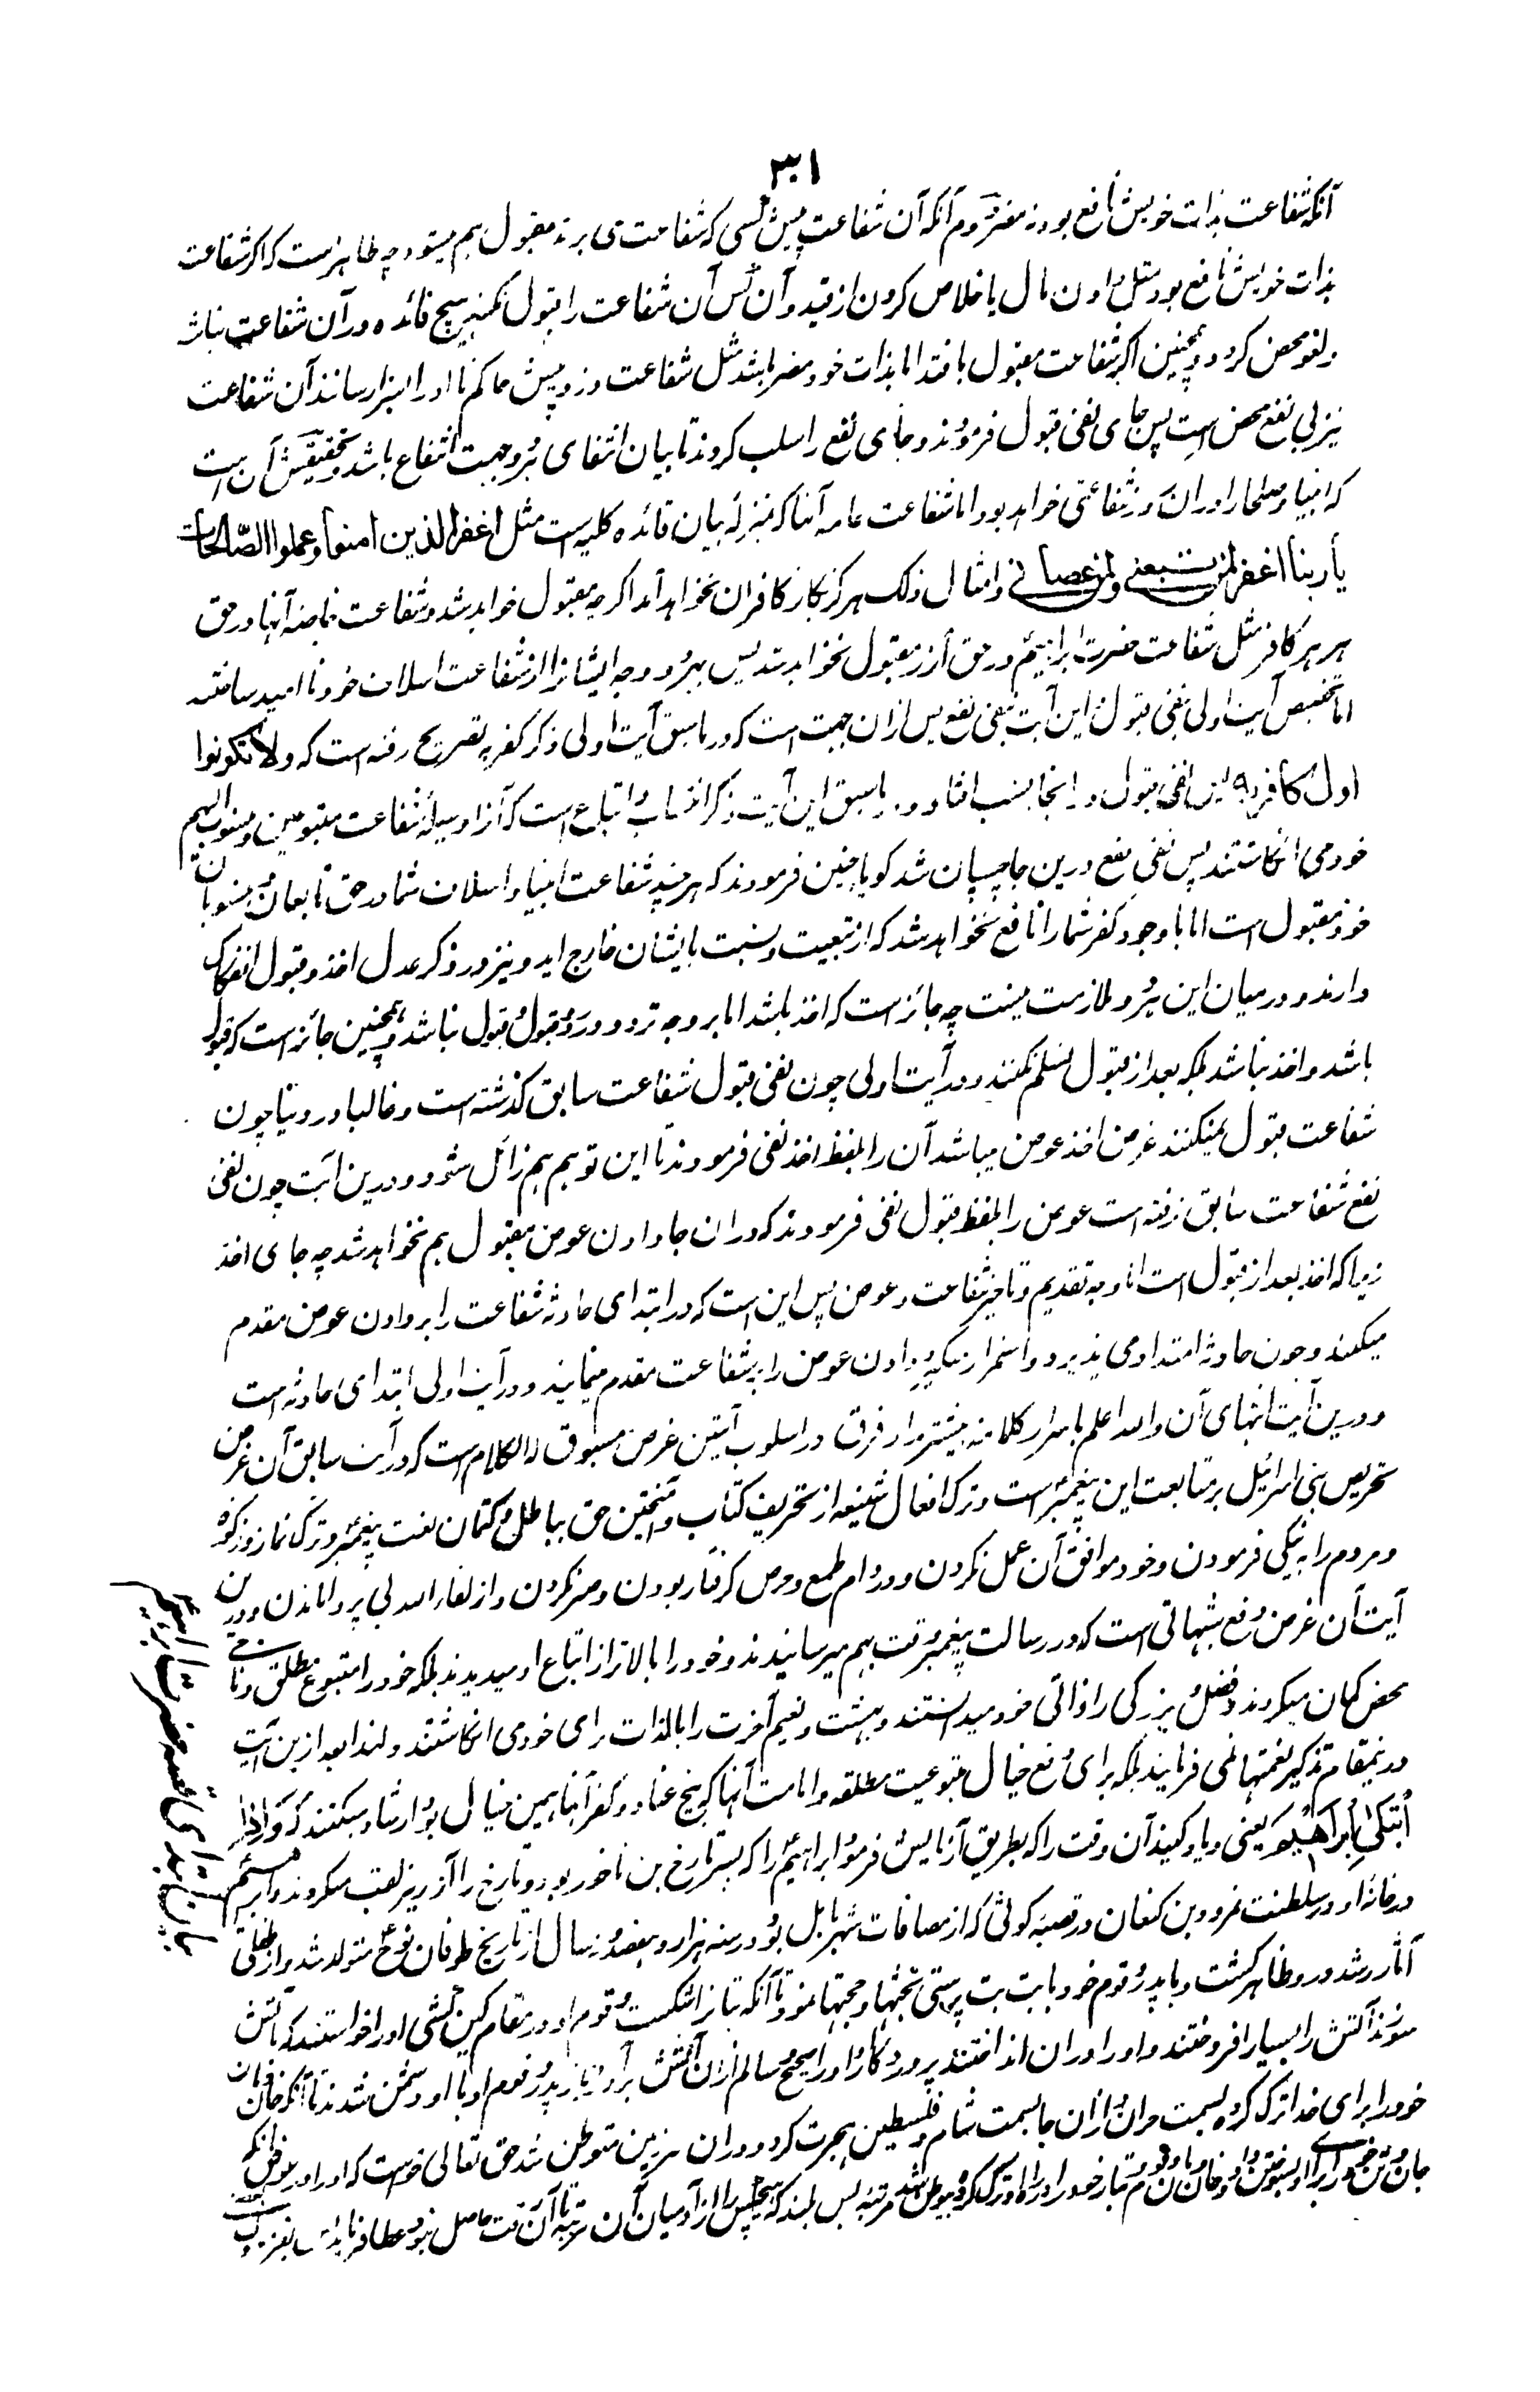 ٣٠١
آنکه شفاعت بذات خویش نافع بود نه مضر دوم آنکه آن شفاعت پیش کسی که شفاعت می برند مقبول هم میشود چه ظاهرست که اگر شفاعت
بذات خویش نافع بود مثل دادن مال یا خلاص کردن از قید و آن کس آن شفاعت را قبول نکند هیچ فائده در آن شفاعت نباشد
و لغو محض گردد و همچنین اگر شفاعت مقبول بافتد اما بذات خود مضر باشد مثل شفاعت دزد پیش حاکم تا او را بسزا رسانند آن شفاعت
نیز بی نفع محض است پس جای نفی قبول فرمودند و جای نفع را سلب کردند تا بیان انتفای هر دو جهت انتفاع باشد و تحقیقش آن است
که انبیا و صلحا را در آن روز شفاعتی خواهد بود اما شفاعت عامه آنها که بمنزله بیان قائده کلیه است مثل اغفر للذین امنوا و عملوا الصّالحات
یا ربنا اغفر لمن تبعنی و لمن عصانی و امثال ذلک هرگز بکار کافران نخواهد آمد اگرچه مقبول خواهد شد و شفاعت خاصه آنها در حق
هر هر کافر مثل شفاعت حضرت ابراهیم در حق آزر مقبول نخواهد شد پس بهر دو وجه ایشانرا از شفاعت اسلاف خود نا امید ساختند
اما تخصیص آیت اولی بنفی قبول و این آیت بنفی نفع پس ازان جهت است که در ماسبق آیت اولی ذکر کفر به تصریح رفته است که و لا تکونوا
اول کافر به پس نفی قبول در اینجا مناسب افتاد و در ماسبق این آیت ذکر انتساب و اتباع است که آنرا وسیلهٔ شفاعت متبوعین و منسوب الیهم
خود می انگاشتند پس نفی نفع درین جا چسپان شد گویا چنین فرمودند که هر چند شفاعت انبیا و اسلاف شما در حق تابعان و منسوبان
خود مقبول است اما با وجود کفر شما را نافع نخواهد شد که از تبعیت و نسبت بایشان خارج اید و نیز در ذکر عدل اخذ و قبول انفکاک
دارند و در میان این هر دو ملازمت نیست چه جائز است که اخذ باشد اما بر وجه تردد و رد و قبول قبول نباشد و همچنین جائز است که قبول
باشد و اخذ نباشد بلکه بعد از قبول تسلم نکنند و در آیت اولی چون نفی قبول شفاعت سابق گذشته است و غالبا در دنیا چون
شفاعت قبول نمیکنند غرض اخذ عوض میباشد آن را بلفظ اخذ نفی فرمودند تا این توهم هم زائل شود و درین آیت چون نفی
نفع شفاعت سابق رفته است عوض را بلفظ قبول نفی فرمودند که در ان جا دادن عوض مقبول هم نخواهد شد چه جای اخذ
زیرا که اخذ بعد از قبول است اما وجه تقدیم و تاخیر شفاعت و عوض پس این است که در ابتدای حادثه شفاعت را بر دادن عوض مقدم
میکنند و چون حادثه امتداد می پذیرد و استمرار میگیرد دادن عوض را بر شفاعت مقدم مینمایند و در آیت اولی ابتدای حادثه است
و درین آیت انتهای آن و الله اعلم باسرار کلامه بیشتر مدار فرق در اسلوب آیتین غرض مسبوق له الکلام است که در آیت سابق آن غرض
تحریص بنی اسرائیل بر متابعت این پیغمبر است و ترک افعال شنیعه از تحریف کتاب و آمیختن حق بباطل و کتمان نعت پیغمبر و ترک نماز و زکوة
و مردم را به نیکی فرمودن و خود موافق آن عمل نکردن و در دام طمع و حرص گرفتار بودن و صبر نکردن و از لقاء الله بی پروا ماندن و درین
آیت آن غرض دفع شبهاتی است که در رسالت پیغمبر وقت بهم میرسانیدند و خود را بالاتر از اتباع او میدیدند بلکه خود را متبوع مطلق و ناجی
محض گمان میکردند و فضل و بزرگی را ذاتی خود میدانستند و بهشت و نعیم آخرت را بالذات برای خود می انگاشتند و لهذا بعد ازین آیت
درینمقام تذکیر نعمتها نمی فرمایند بلکه برای دفع خیال متبوعیت مطلقه و امامت آنها که بیخ عناد و کفر آنها همین خیال بود ارشاد میکنند که وَاِذِ
ابْتَلٰی اِبْرَاهِیْمَ یعنی و یاد کنید آن وقت را که بطریق آزمایش فرمود ابراهیم را که پسر تارخ بن ناخور بود و تارخ را آزر نیز لقب میکردند و ابراهیم
در خانهٔ او در سلطنت نمرود بن کنعان در قصبه کوثی که از مضافات شهر بابل بود در سنه هزار و هفصد و نه سال از تاریخ طوفان نوح متولد شد و از طفلی
آثار رشد در و ظاهر گشت و با پدر و قوم خود بابت بت پرستی بحثها و حجتها نمود تا آنکه بتانرا شکست و قوم او در مقام کین کشی او را خواستند که بآتش
سوزند آتش را بسیار افروختند و او را در ان انداختند پروردگار او را صحیح و سالم ازان آتش برآورد باز پدر و قوم او با او دشمن شدند تا آنکه خان و مان
خود را برای خدا ترک کرده بسمت حران و ازان جا بسمت شام و فلسطین هجرت کرد و در ان سرزمین متوطن شد حق تعالی خواست که او را در عوض آنکه
جان و تن خود را برای او بسوختن داد و خان و مان و قوم و تبار خود را در راه او ترک کرده بیوطن شد مرتبهٔ بس بلند که هیچکس را از آدمیان آن مرتبه تا آن وقت حاصل نبود عطا فرماید
بیان ابتدای قصه حضرت ابراهیم علیه السلام